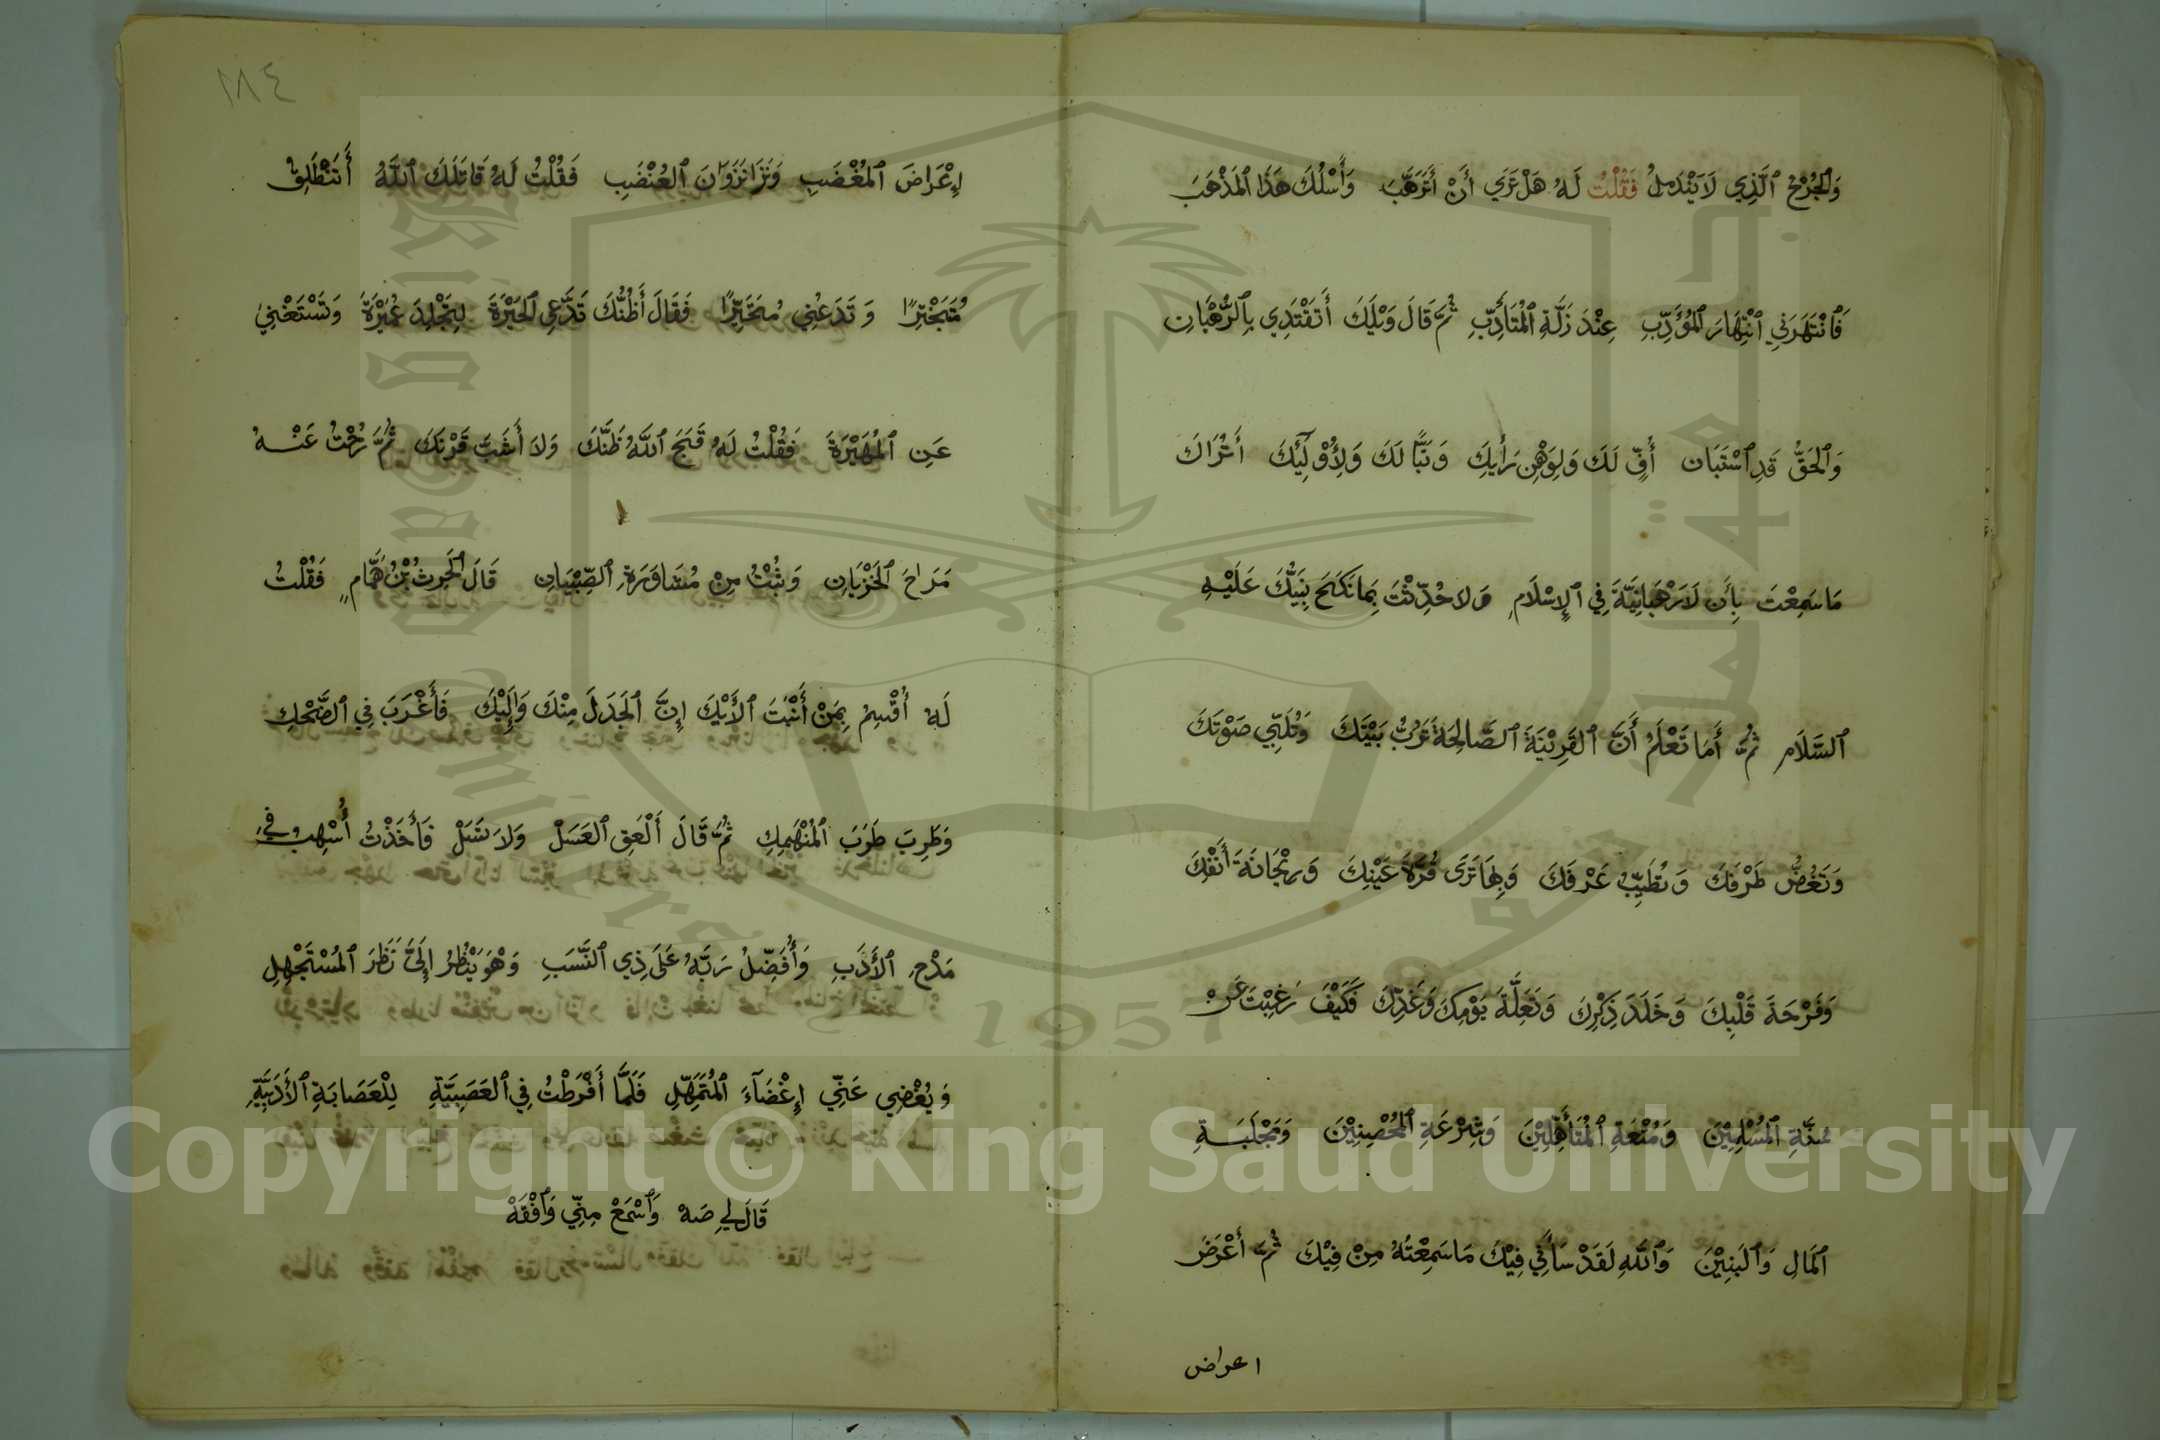 وَالْجُرْحُ ٱلَّذِي لَا يَنْدَمِلُ فَقُلْتُ لَهُ هَلْ تَرَي أَنْ أَتَرَهَّبَ وَأَسْلُكَ هَذَا ٱلْمَذْهَبَ
فَانْتَهَرَنِي ٱنْتِهَارَ ٱلْمُؤَدِّبِ عِنْدَ زَلَّةِ ٱلْمُتَأَدِّبِ ثُمَّ قَالَ وَيْلَكَ أَتَقْتَدِي بِٱلرُّهْبَانِ
وَٱلْحَقُّ قَدِ ٱسْتَبَانِ أُفٍّ لَكَ وَلِوَهْنِ رَأْيِكَ وَتَبًّا لَكَ وَلِأُوْلَٓئِكَ أَتُرَاكَ
مَا سَمِعْتَ بِأَن لَا رَهْبَانِيَّةَ فِي ٱلْإِسْلَامِ وَلَا حُدِّثْتَ بِمَا نَكَحَ نَبِيُّكَ عَلَيْهِ
ٱلسَّلَامِ ثُمَّ أَمَا تَعْلَمُ أَنَّ ٱلْقَرِيْنَةَ ٱلصَّالِحَةَ تَرُبُّ بَيْتَكَ وَتُلَبِّي صَوْتَكَ
وَتَغُضُّ طَرْفَكَ وَتُطَيِّبُ عَرْفَكَ وَبِهَا تَرَى قُرَّةَ عَيْنِكَ وَرَيْحَانَةَ أَنْفِكَ
وَفَرْحَةَ قَلْبِكَ وَخَلَدَ ذِكْرِكَ وَتَعِلَّةَ يَوْمِكَ وَغَدِكَ فَكَيْفَ رَغِبْتَ عَنْ
سُنَّةِ ٱلْمُسْلِمِيْنَ وَمُتْعَةِ ٱلْمُتَأَهِّلِيْنَ وَشِرْعَةِ ٱلْمُحْصِنِيْنَ وَمَجْلَبَةِ
ٱلْمَالِ وَٱلْبَنِيْنَ وَٱللَّهِ لَقَدْ سَاۤنِي فِيْكَ مَا سَمِعْتُهُ مِنْ فِيْكَ ثُمَّ أَعْرَضَ
اعراض
١٨٤
إِعْرَاضَ ٱلْمُغْضَبِ وَنَزَا نَزَوَانَ ٱلْعُنْضَبِ فَقُلْتُ لَهُ قَاتَلَكَ ٱللَّهُ أَتَنْطَلِقُ
مُتَبَخْتِرًا وَتَدَعُنِي مُتَحَيِّرًا فَقَالَ أَظُنُّكَ تَدَّعِي ٱلْحَيْرَةَ لِتَجْلِدَ عُمَيْرَةَ وَتَسْتَغْنِيَ
عَنِ ٱلْمُهَيْرَةَ فَقُلْتُ لَهُ قَبَّحَ ٱللَّهُ ظَنَّكَ وَلَا أَشَبَّ قَرْنَكَ ثُمَّ رُحْتُ عَنْهُ
مَرَاحَ ٱلْخَزْيَانِ وَتُبْتُ مِنْ مُشَاوَرَةِ ٱلصِّبْيَانِ قَالَ ٱلْحَرِثُ بْنُ هَمَّامٍ فَقُلْتُ
لَهُ أُقْسِمُ بِمَنْ أَنْبَتَ ٱلْأَيْكَ إِنَّ ٱلْجَدَلَ مِنْكَ وَإِلَيْكَ فَأَغْرَبَ فِي ٱلضَّحْكِ
وَطَرِبَ طَرَبَ ٱلْمُنْهَمِكِ ثُمَّ قَالَ ٱلْعَقِ ٱلْعَسَلْ وَلَا تَسَلْ فَأَخَذْتُ أُسْهِبُ فِي
مَدْحِ ٱلْأَدَبِ وَأُفَضِّلُ رَبَّهُ عَلَى ذِي ٱلنَّسَبِ وَهْوَ يَنْظُرُ إِلَيَّ نَظَرَ ٱلْمُسْتَجْهِلِ
وَيُغْضِي عَنِّي إِغْضَآءَ ٱلْمُتَمَهِّلِ فَلَمَّا أَفْرَطْتُ فِي ٱلْعَصَبِيَّةِ لِلْعَصَابَةِ ٱلْأَدَبِيَّةِ
قَالَ لِي صَهْ وَٱسْمَعْ مِنِّي وَٱفْقَهْ
Copyright © King Saud University
King Saud University
1957